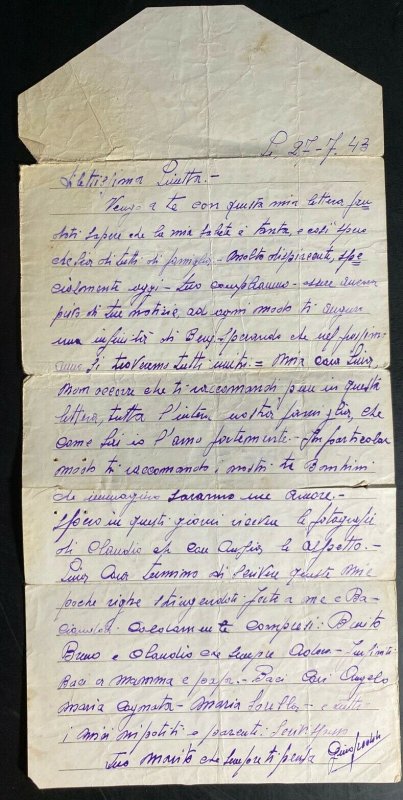 27-7.43
Vengo a te con questa mia lettera fa=
sapere che la mia salute è tanta, e così spero
che sia di tutti di famiglia. - Molto dispiacente, spe=
cialmente oggi - tuo compleanno - essere ancora
privo di tue notizie, ad ogni modo ti auguro
una infinità di Bene. Sperando che nel prossimo
anno ci troveremo tutti uniti. = Mia cara
Non occorre che ti raccomandi pure in questa
lettera, tutta l'intera nostra famiglia, che
come sai io l'amo fortemente. - In particolar
modo ti raccomando i nostri tre Bambini
che immagino saranno un amore. -
Spero in questi giorni ricevere le fotografie
di Claudio con ansia le aspetto. -
cara termino di scrivere queste mie
poche righe stringendoti forte a me e Ba=
compresi: Benito
Bruno e Claudio che sempre adoro. -
Baci a mamma e papà. - Baci cari Angelo
Maria cognata - Maria sorella - e tutti
i miei nipotiti e parenti.
Tuo marito che sempre ti pensa